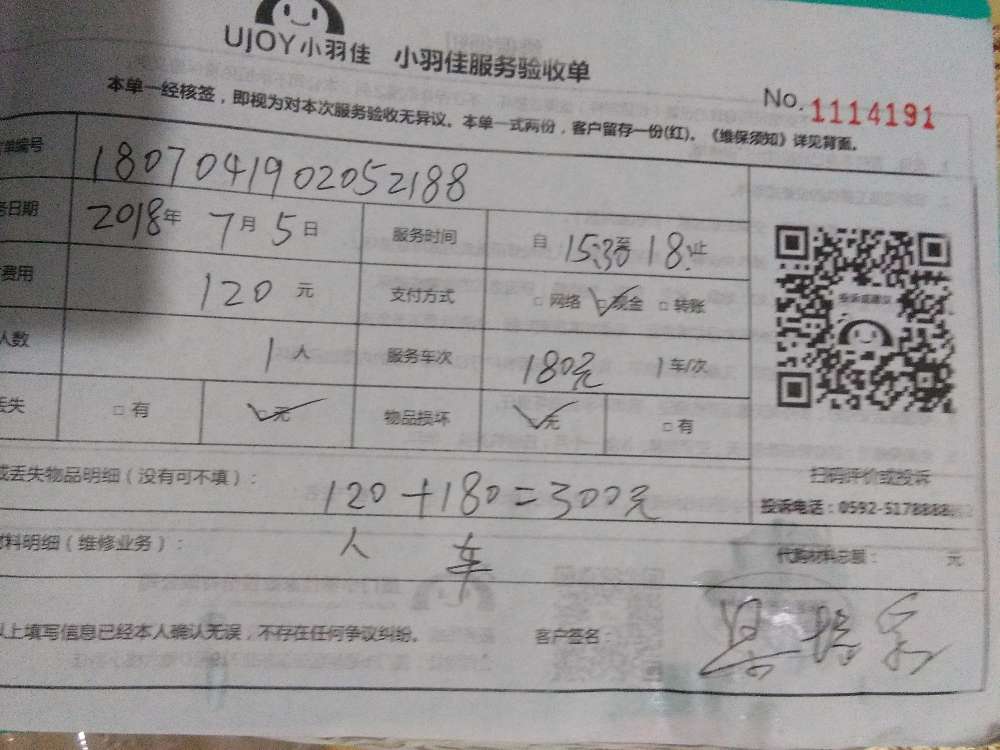 UJOY小羽佳 小羽佳服务验收单
No. 1114191
本单一经核签，即视为对本次服务验收无异议。本单一式两份，客户留存一份(红)。《维保须知》详见背面。
单编号 1807041902052188
日期 2018年 7月 5日 服务时间 自 15:30至 18:止
费用 120 元 支付方式 □ 网络 ☑现金 □ 转账
投诉或建议
人数 1人 服务车次 180元 1车/次
丢失 □ 有 ☑无 物品损坏 ☑无 □ 有
或丢失物品明细（没有可不填）: 120+180=300元
扫码评价或投诉
投诉电话：0592-5178888
材料明细（维修业务）: 人 车 代购材料总额： 元
以上填写信息已经本人确认无误，不存在任何争议纠纷。 客户签名：